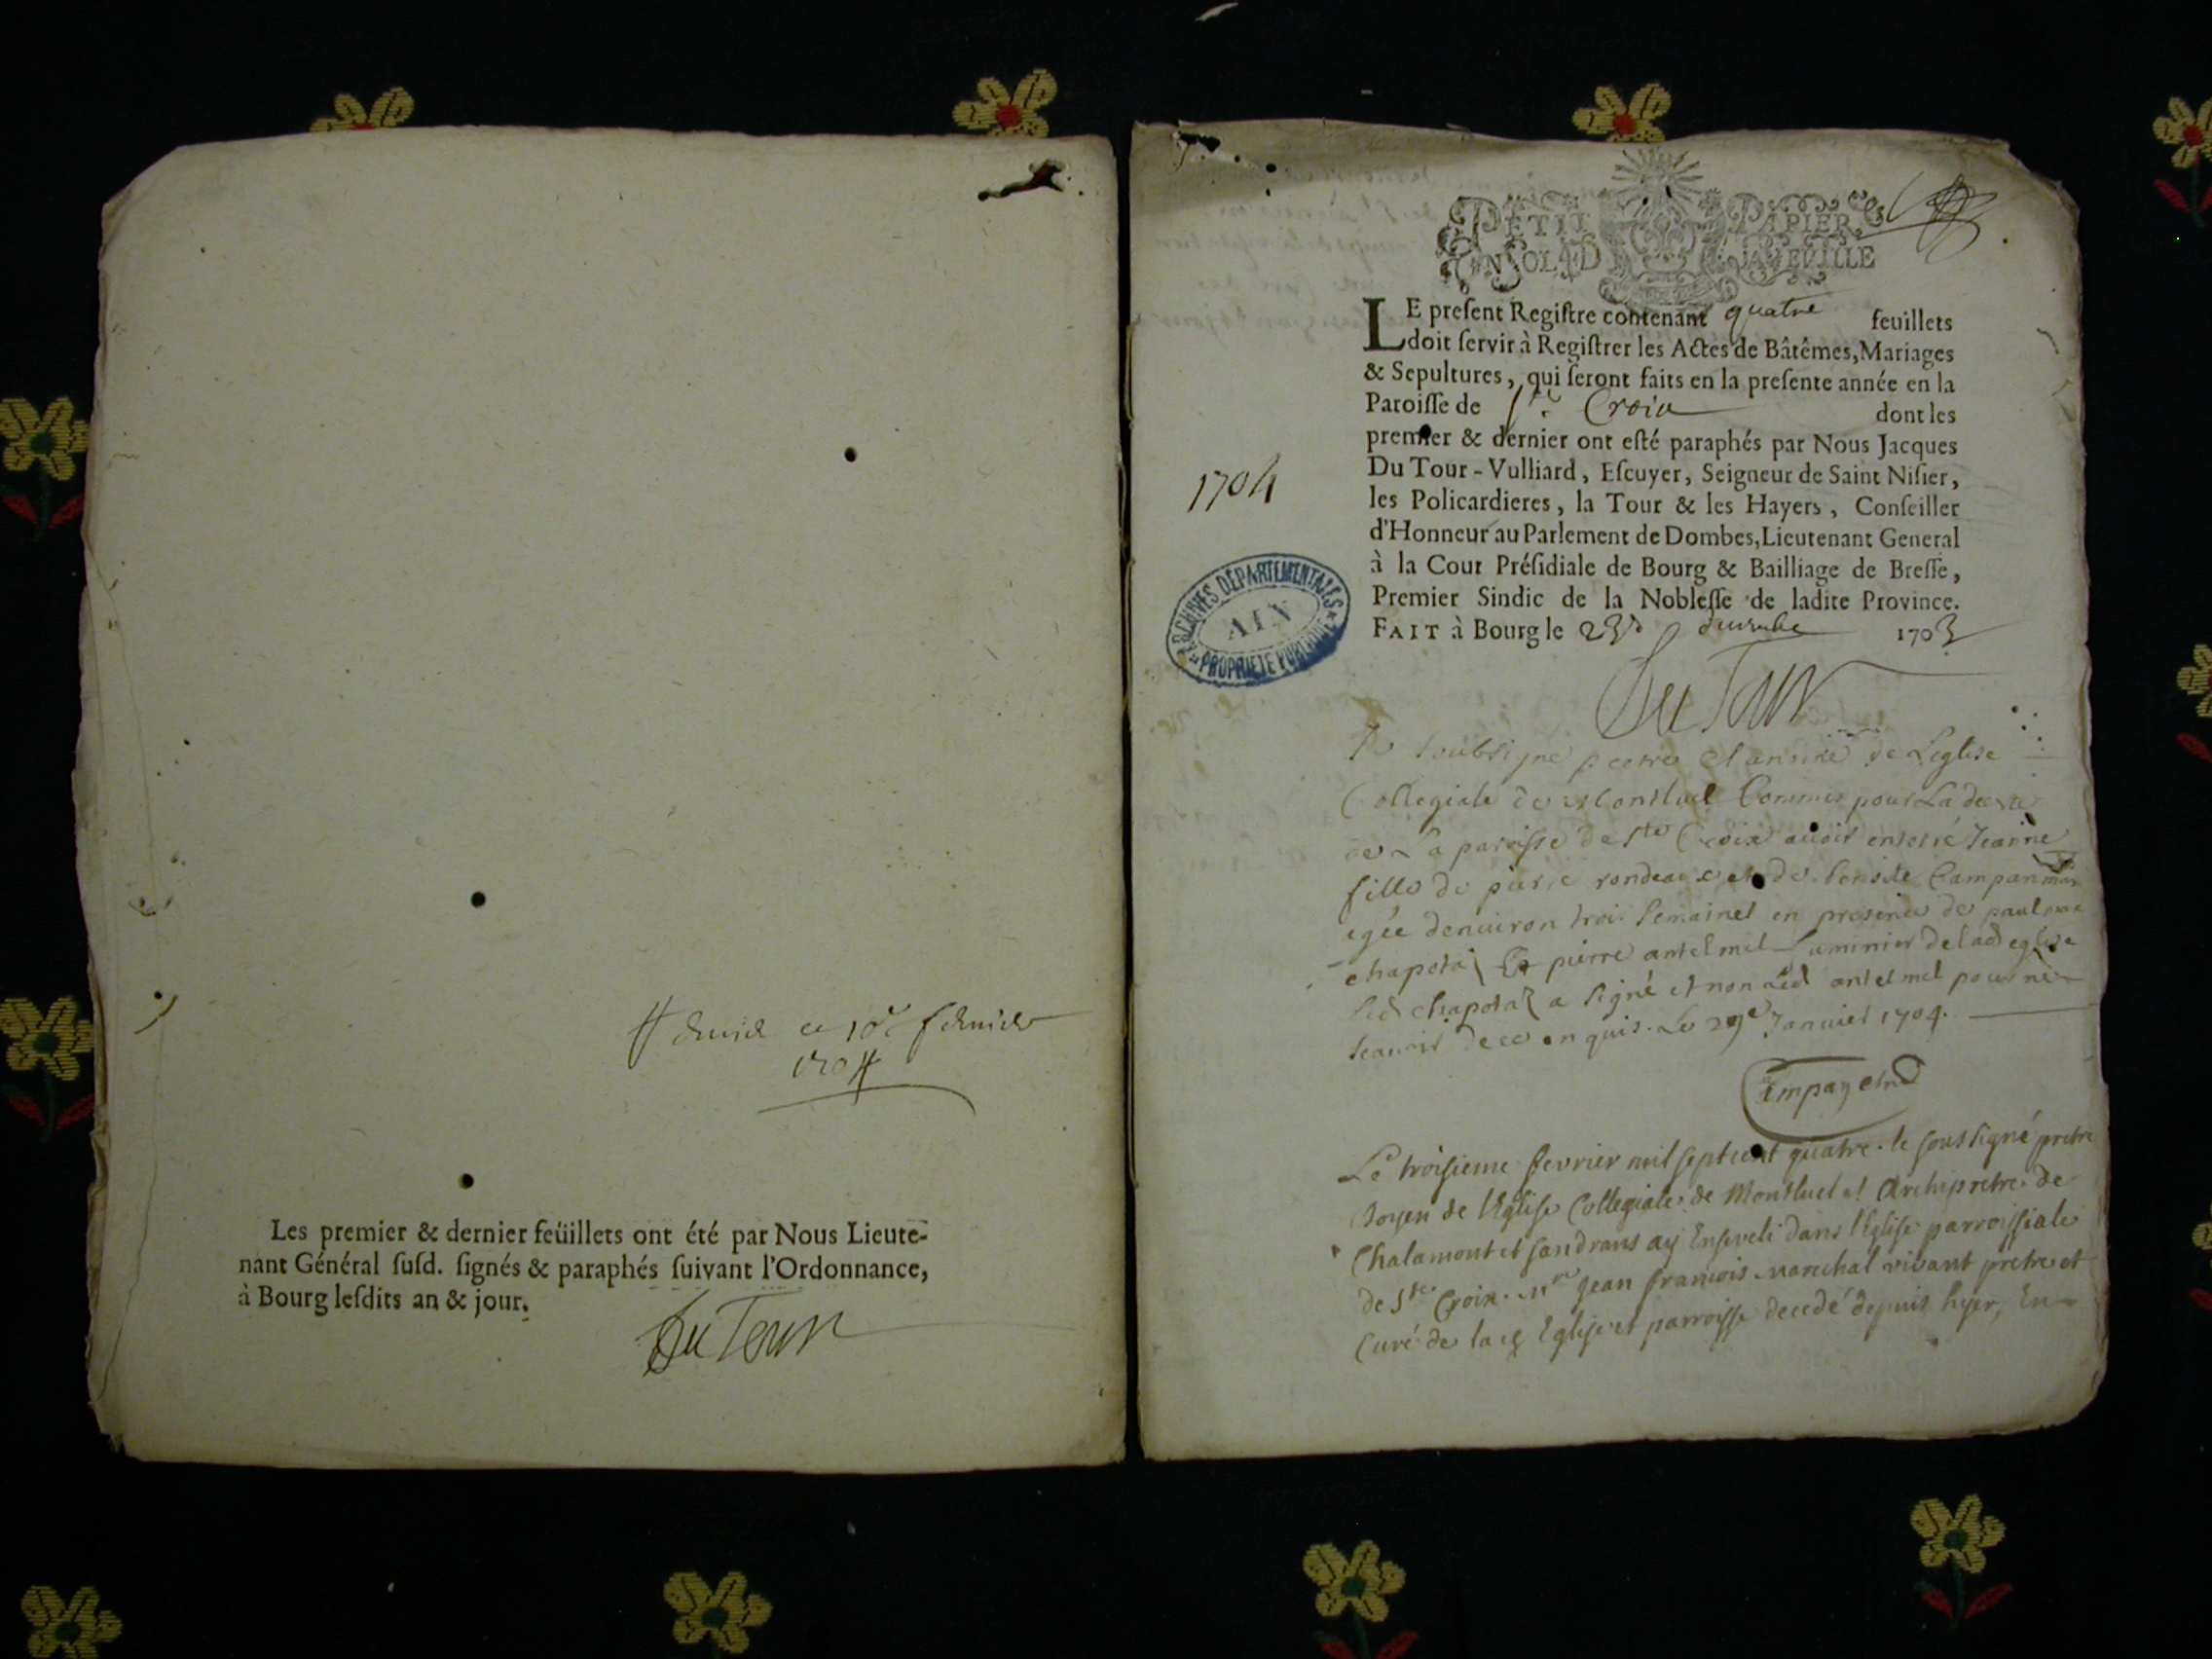 ce 10e
1704
Les premier & dernier feüillets ont été par Nous Lieute-
nant Général ſuſd. ſignés & paraphés ſuivant l'Ordonnance,
à Bourg leſdits an & jour.
Du Tour
PETIT PAPIER
UN SOL LA FEUILLE
LE preſent Regiſtre contenant quatre feuillets
doit ſervir à Regiſtrer les Actes de Bâtêmes, Mariages
& Sepultures, qui ſeront faits en la preſente année en la
Paroiſſe de Ste Croix dont les
premier & dernier ont eſté paraphés par Nous Jacques
Du Tour-Vulliard, Eſcuyer, Seigneur de Saint Niſier,
les Policardieres, la Tour & les Hayers, Conſeiller
d'Honneur au Parlement de Dombes, Lieutenant General
à la Cour Préſidiale de Bourg & Bailliage de Breſſe,
Premier Sindic de la Nobleſſe de ladite Province.
FAIT à Bourg le 23e 1703
1704
ARCHIVES DEPARTEMENTALES
AIN
PROPRIETE PUBLIQUE
Du Tour
Je soubsigne pretre de Leglise
Collegiale de Montluel Commis pour La
de La paroisse de Ste Croix avoir enterré Jeanne
fille de pierre rondeau et de benoite
agée denuiron trois semaines en presence de paul
chapota et pierre antelmel Luminier de lad eglise
led chapota a signé et non led antelmel pour ne
scauoir de ce enquis. Le 29e Januier 1704.
Le troisieme fevrier mil sept cent quatre. je soussigné pretre
Doyen de l'Eglise Collegiale de Montluel et Archipretre de
Chalamont et sandrans ay Enseveli dans l'Eglise parroissiale
de Ste Croix. Mre Jean francois marechal vivant pretre et
Curé de lad Eglise et parroisse decedé depuis hyer, En